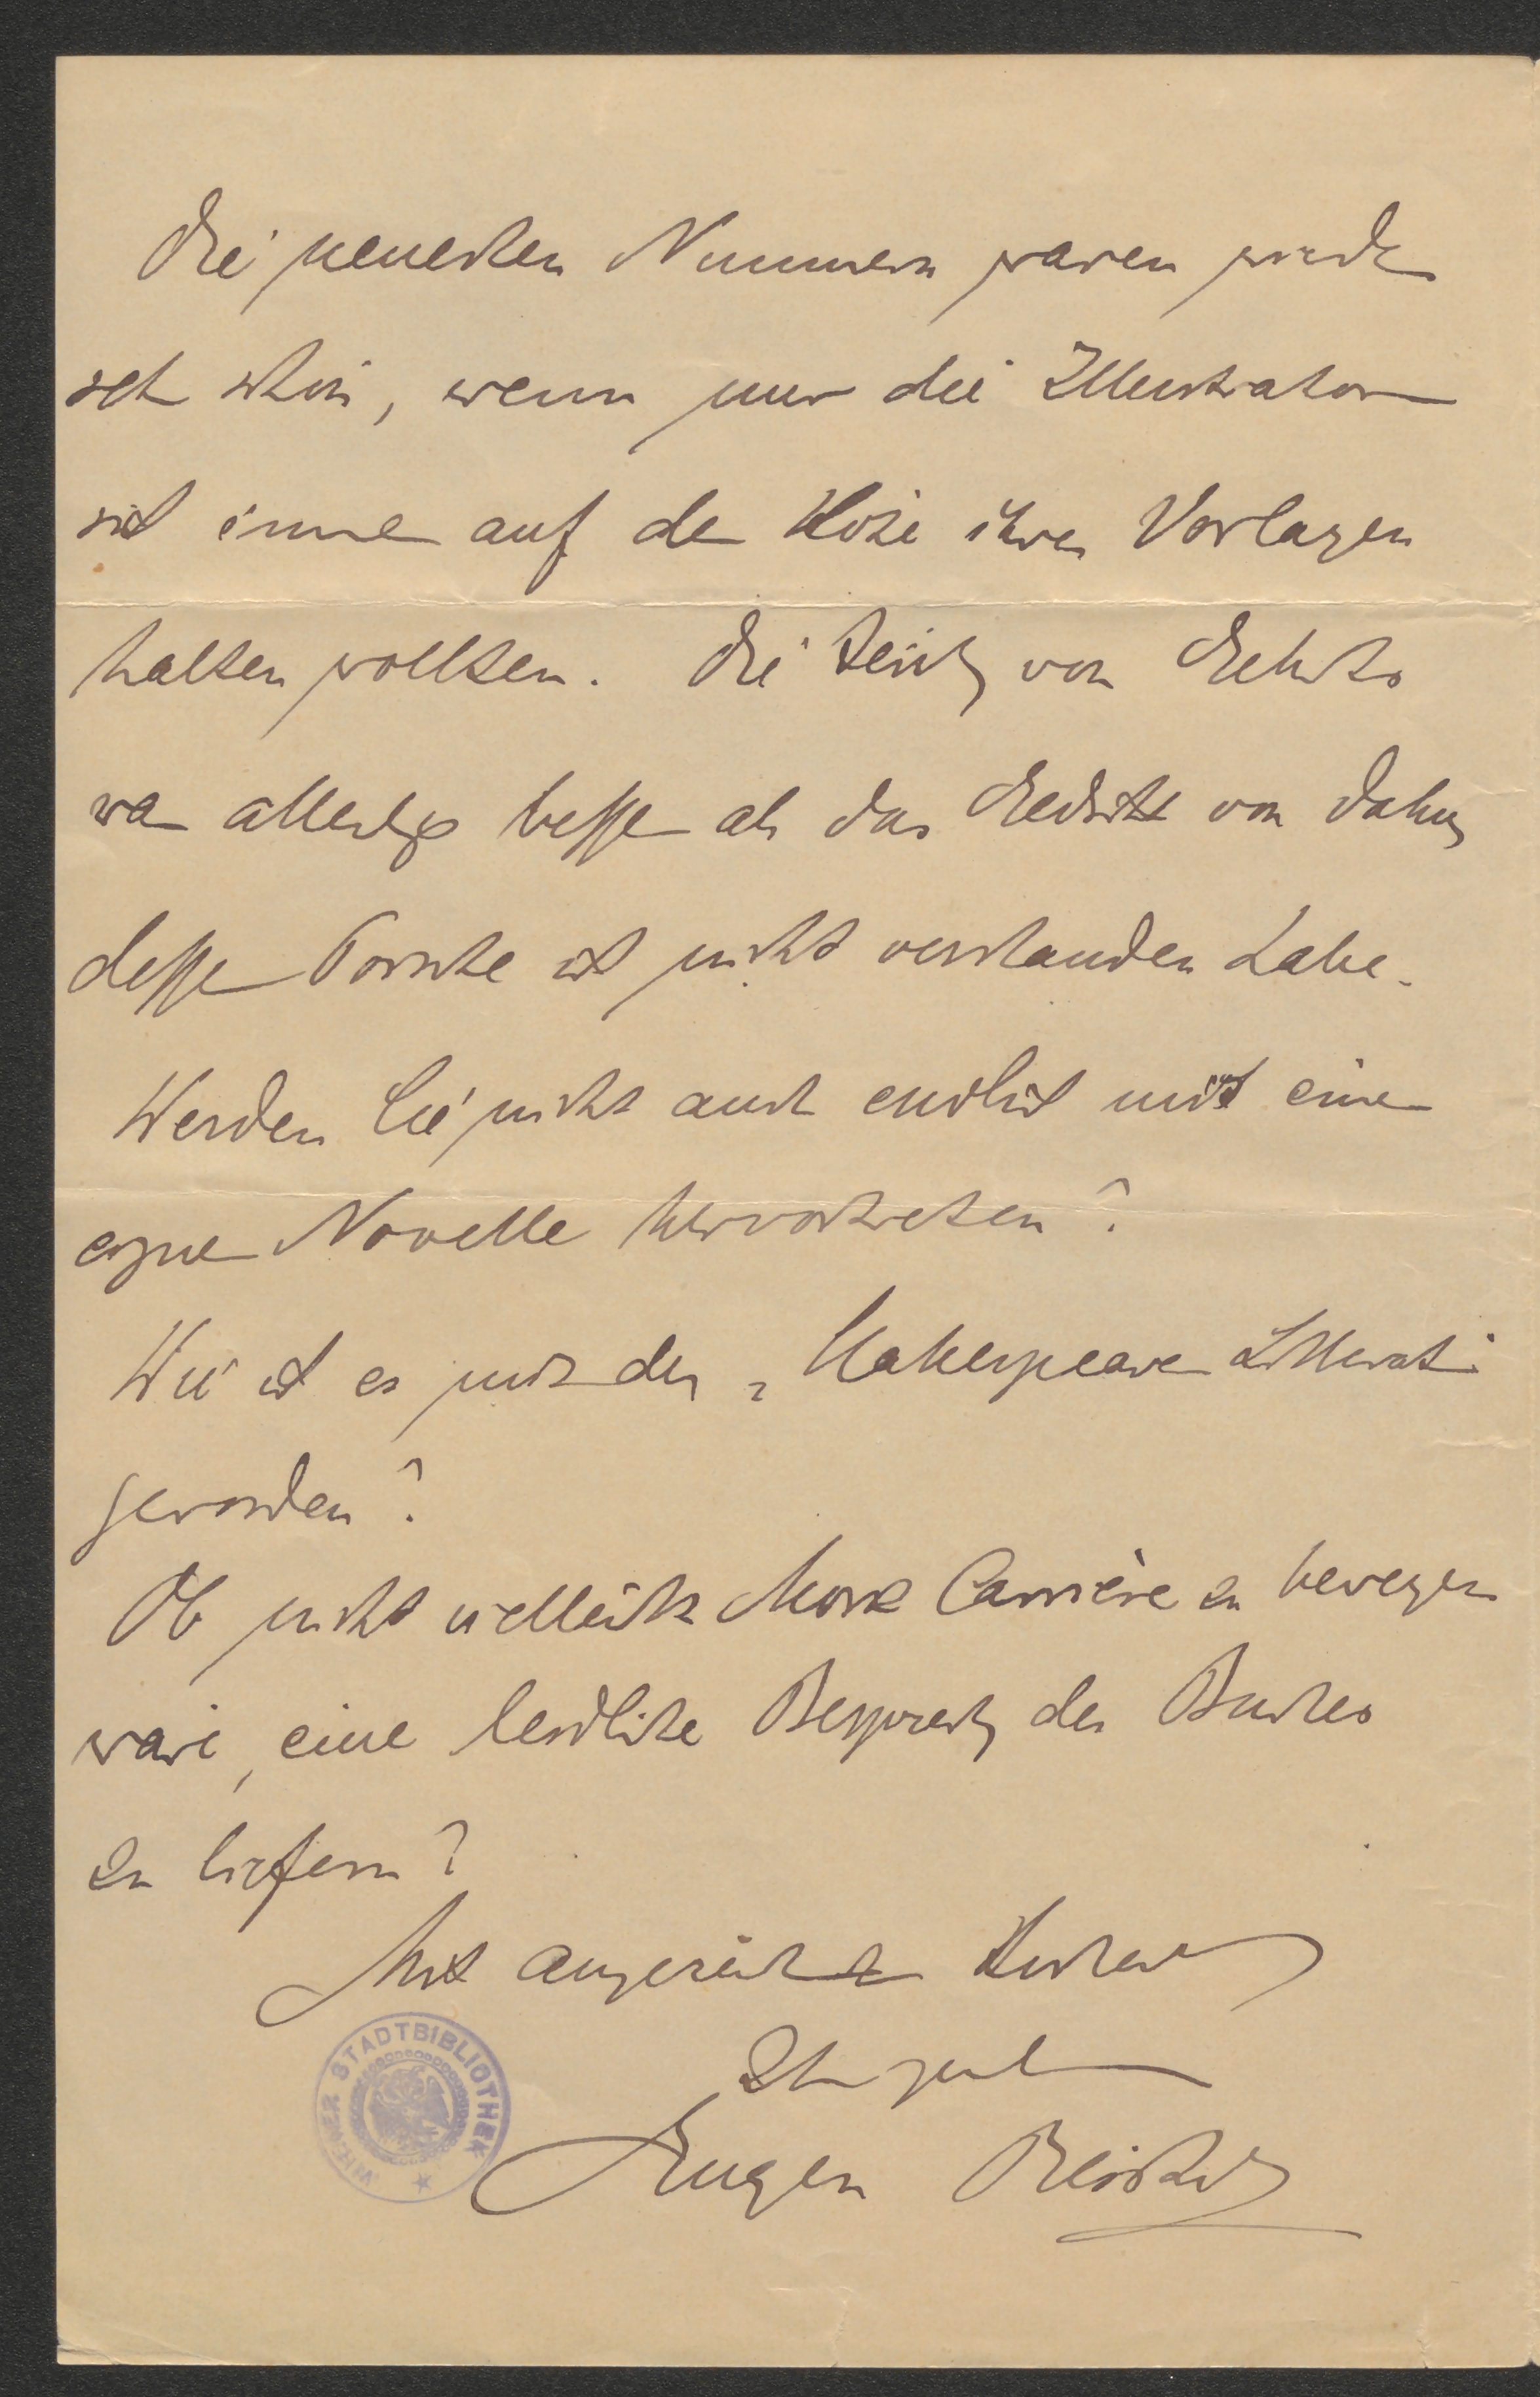 Die neuesten Nummern waren wieder
sehr schön, wenn nur die Illustratoren
sich immer auf der Höhe ihrer Vorlagen
halten wollten. Die von
war allerdings besser als das Gedicht von
dessen ich nicht verstanden habe.
Werden Sie nicht auch endlich mit einer
eigenen Novelle hervortreten?
Wie ist es mit der „Shakespeare Litteratur
geworden?
Ob nicht vielleicht Moriz Carrière zu bewegen
wäre, eine Besprechung des Buches
zu liefern?
Mit ausgezeichneter Hochachtung
Ihr ganz ergebener
Eugen Reichel
WIENER STADTBIBLIOTHEK